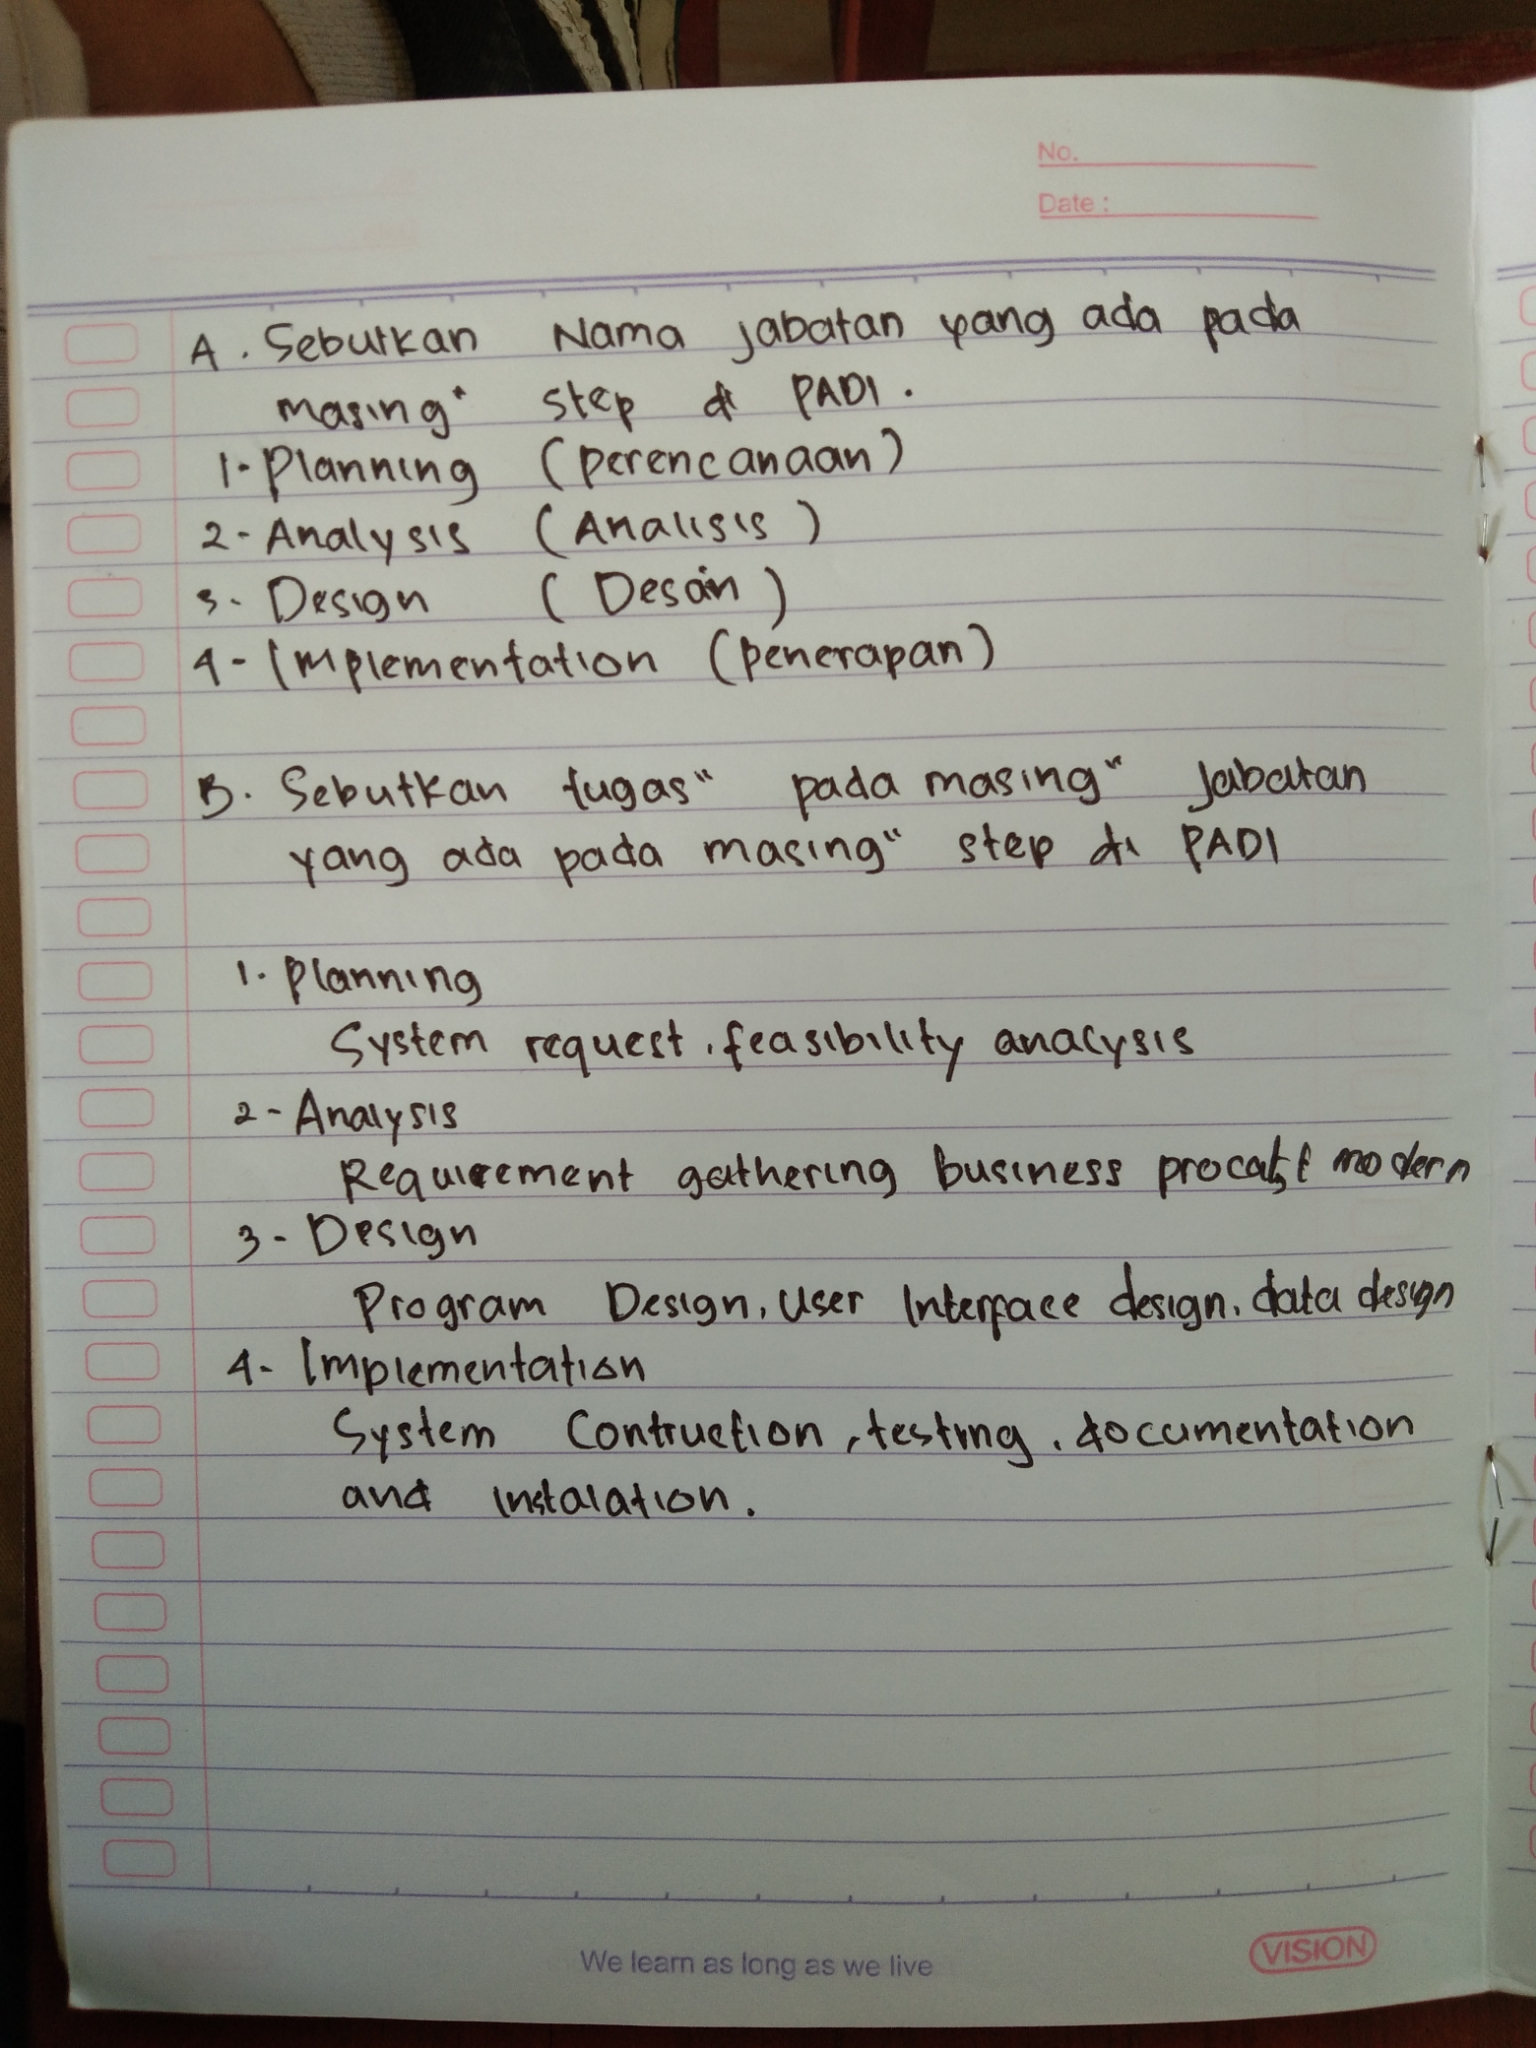 No.
Date :
A. Sebutkan Nama jabatan yang ada pada
masing" step di PADI.
1. Planning (perencanaan)
2- Analysis (Analisis)
3. Design (Desain)
4- Implementation (penerapan)
B. Sebutkan tugas" pada masing" Jabatan
yang ada pada masing" step di PADI
1. Planning
System request, feasibility analysis
2- Analysis
Requirement gathering business modern
3- Design
Program Design, User Interface design, data design
4- Implementation
System Contruction, testing, documentation
and instalation.
We learn as long as we live
VISION